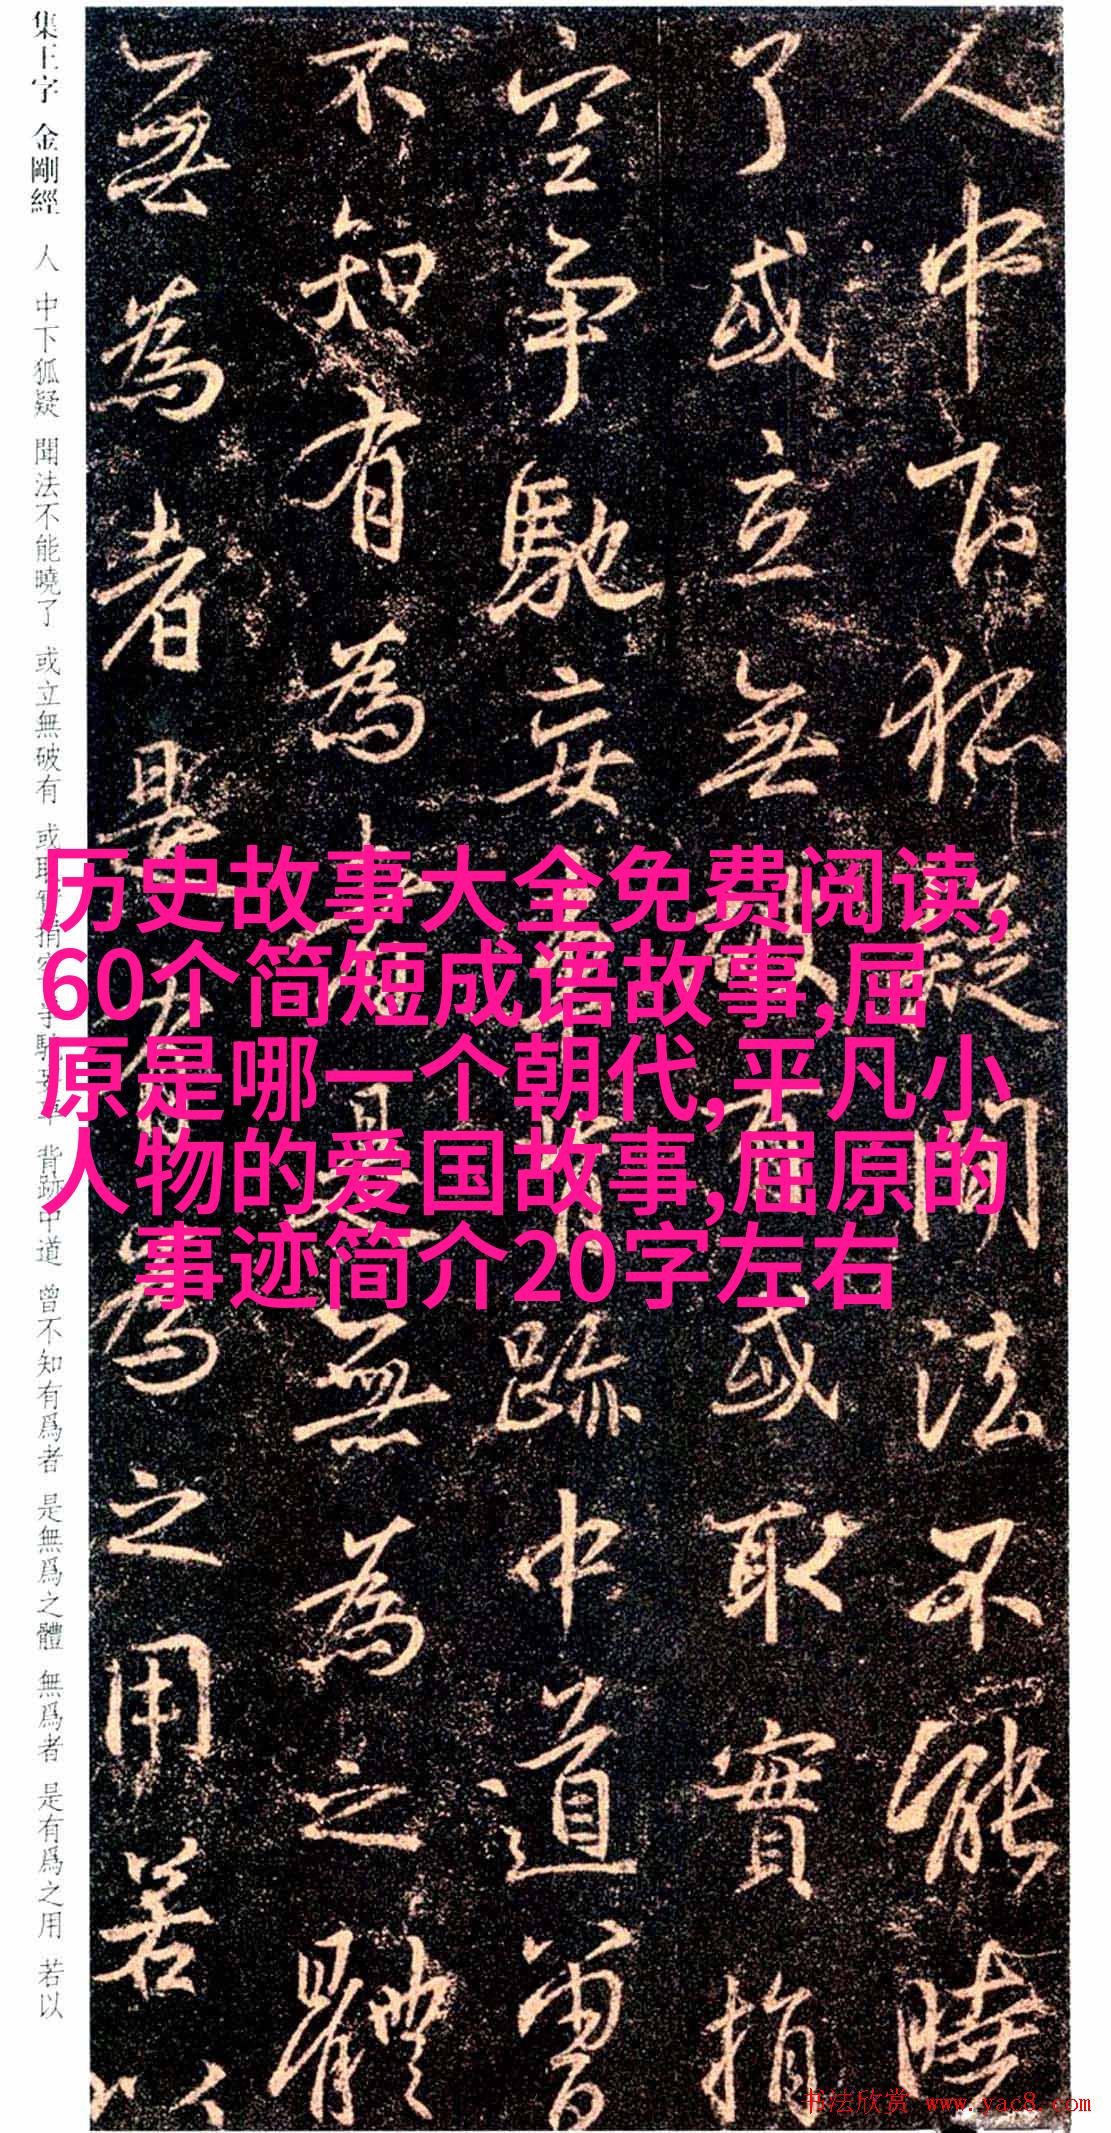 历史故事大全免费阅读,
60个简短成语故事,屈
原是哪一个朝代,平凡小
人物的爱国故事,屈原的
事迹简介20字左右
人中下狐疑聞法不能曉
了或立無破有或取實捐
空爭馳妄背跡中道曾
不知有為者是無為之體
無為者是有為之用若以
集王字 金剛經 人 中下狐疑 聞法不能曉了 或立無破有 或取 背跡中道 曾不知有爲者 是無爲之體 無爲者 是有爲之用 若以
书法欣赏 www.yac8.com